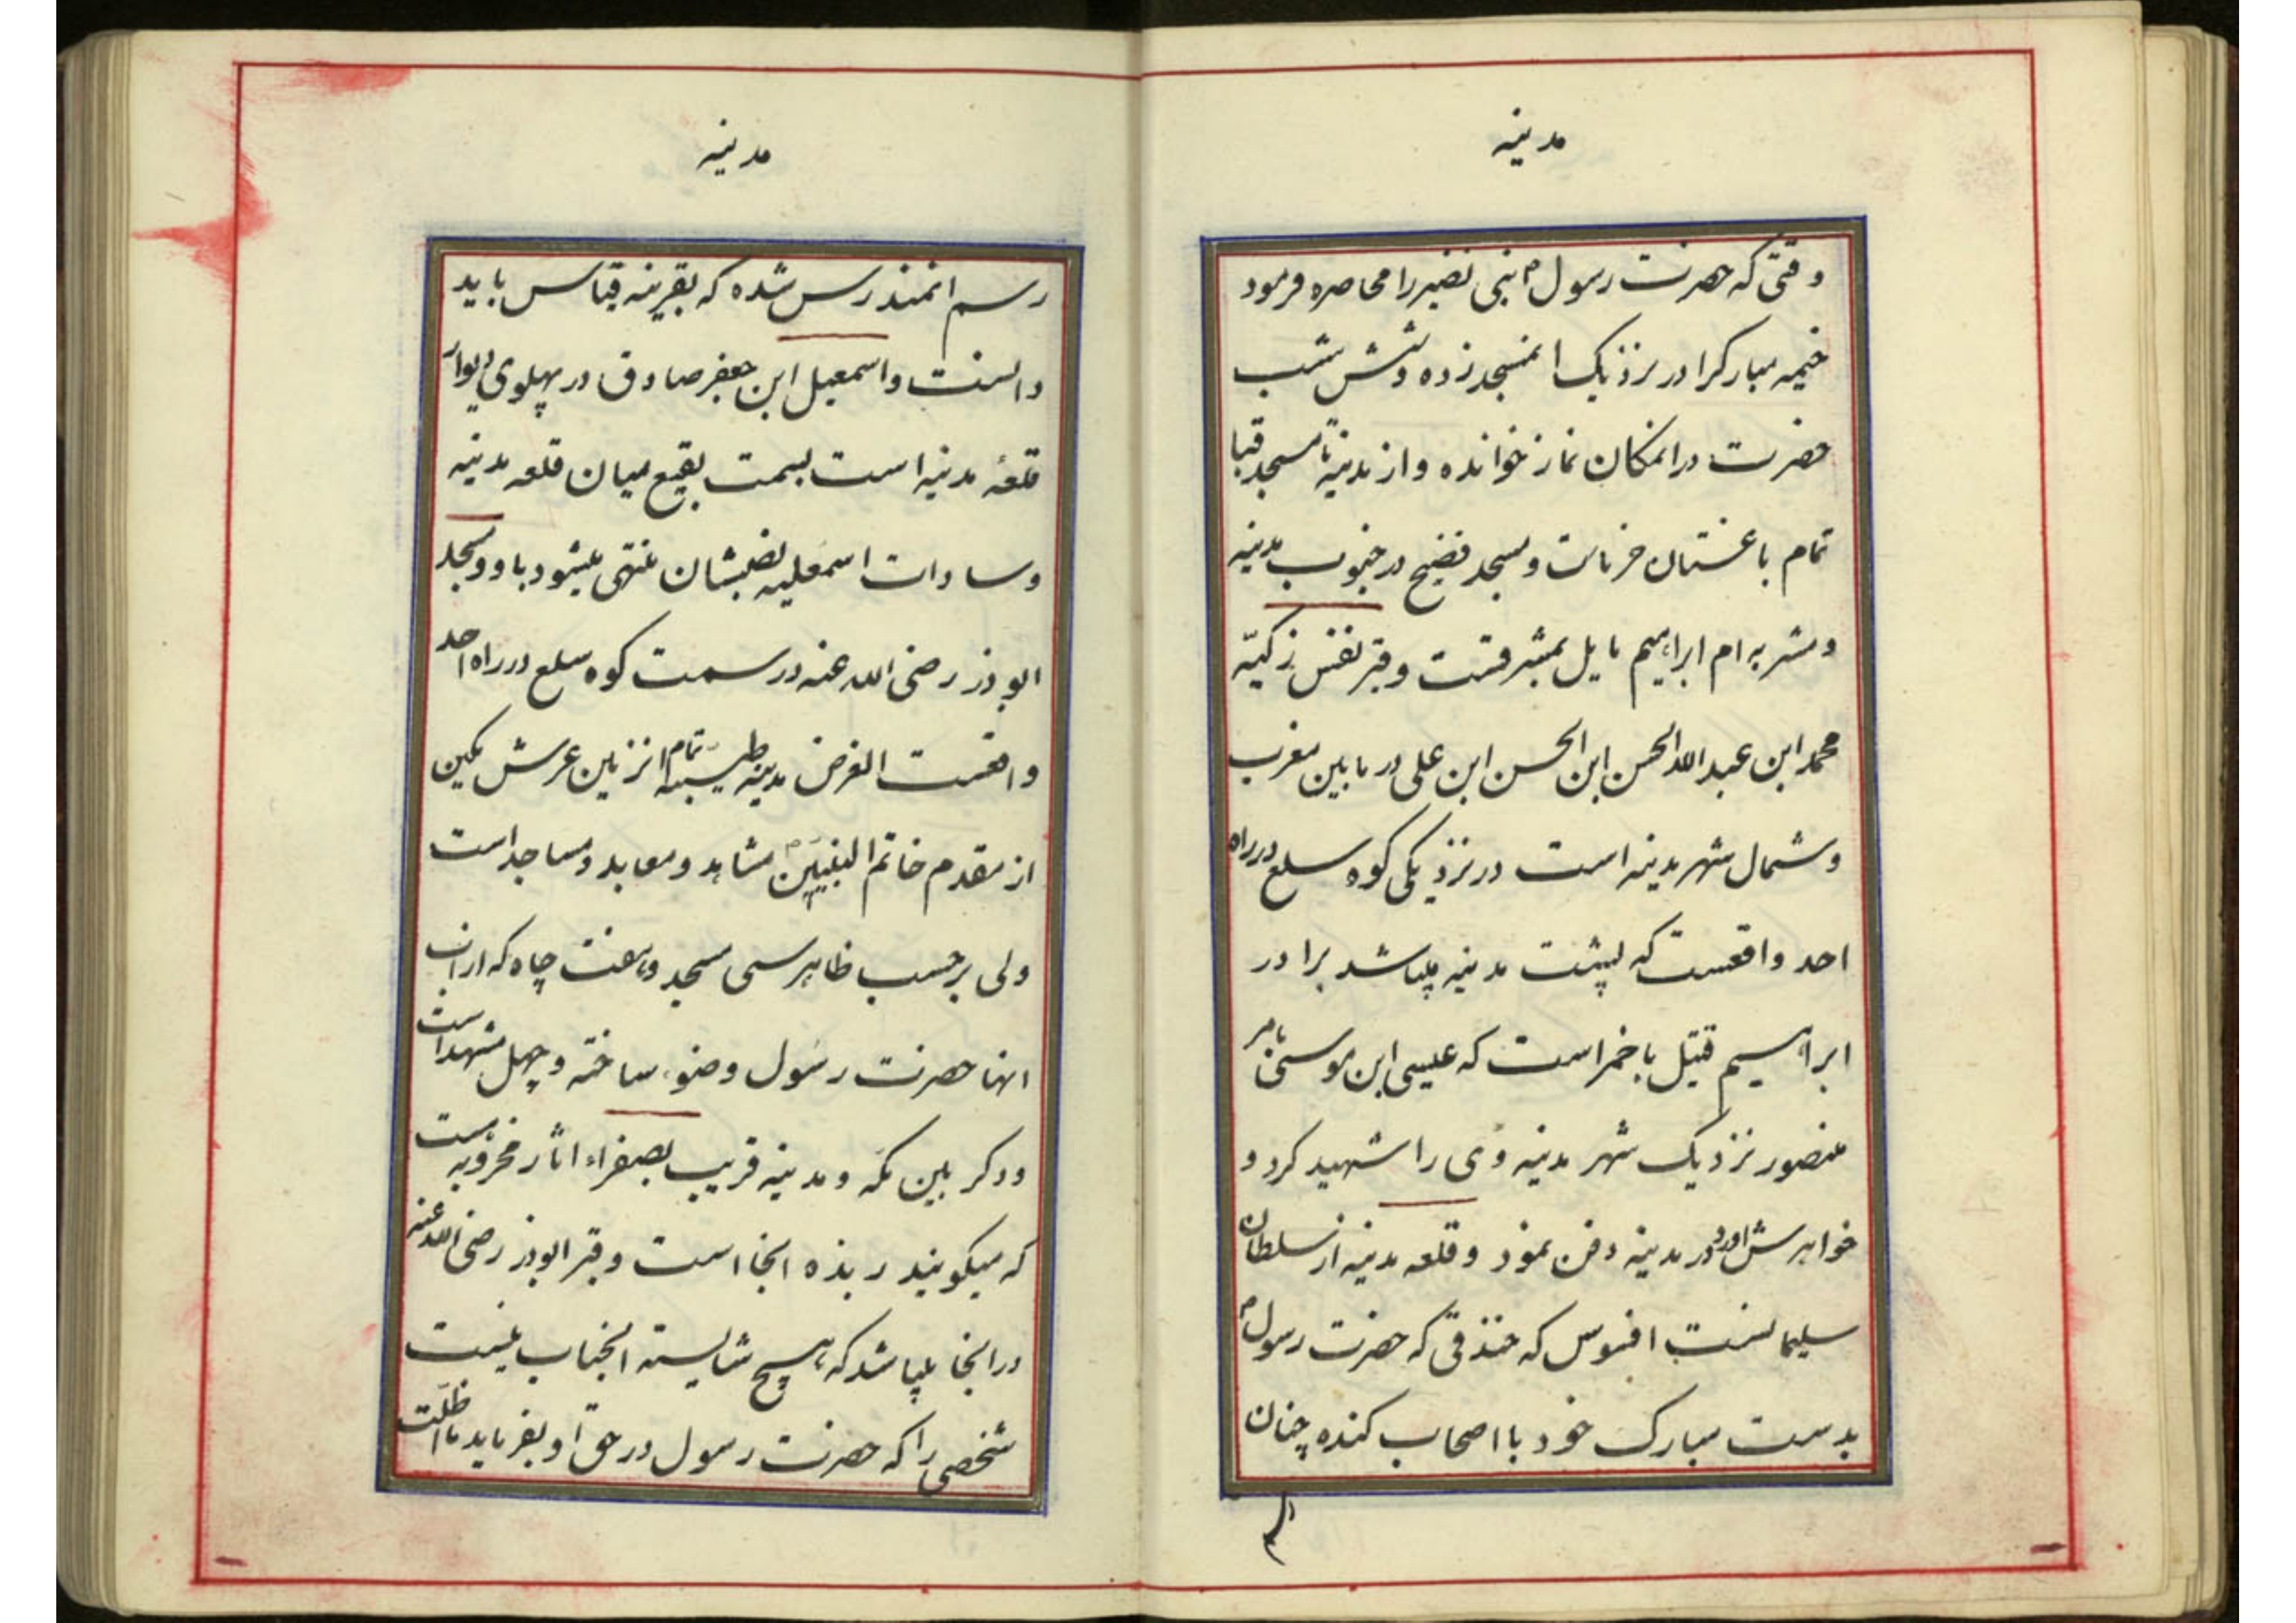 مدینه
وقتی که حضرت رسول ص بنی نضیر را محاصره فرمود
خیمه مبارکرا در نزدیک انمسجد زده و شش شب
حضرت در انمکان نماز خوانده و از مدینه تا مسجد قبا
تمام باغستان خرماست و مسجد فضیح در جنوب مدینه
و مشربه ام ابراهیم مایل بمشرقست و قبر نفس زکیّه
محمد ابن عبدالله الحسن ابن الحسن ابن علی در مابین مغرب
و شمال شهر مدینه است در نزدیکی کوه سلع در راه
احد واقعست که پشت مدینه میباشد برادر
ابراهیم قتیل باخمرا است که عیسی ابن موسی بامر
منصور نزدیک شهر مدینه وی را شهید کرد و
خواهرش اورا در مدینه دفن نمود و قلعه مدینه از سلطان
سلیمانست افسوس که خندقی که حضرت رسول ص
بدست مبارک خود با اصحاب کنده چنان
مدینه
رسم انمندرس شده که بقرینه قیاس باید
دانست و اسمعیل ابن جعفر صادق در پهلوی دیوار
قلعهٔ مدینه است بسمت بقیع میان قلعه مدینه
و سادات اسمعلیه نصبشان منتهی میشود باو و مسجد
ابوذر رضی الله عنه در سمت کوه سلع در راه احد
واقعست الغرض مدینه طیبه تمام از زمین عرش مکین
از مقدم خاتم النبیین ص مشاهد و معابد و مساجد است
ولی برحسب ظاهر سی مسجد و هفت چاه که از اب
انها حضرت رسول وضوء ساخته و چهل مشهد است
و دکر بین مکه و مدینه قریب بصفراء اثار مخروبه است
که میکویند ربذه انجا است و قبر ابوذر رضی الله عنه
در انجا میباشد که هیچ شایسته انجناب نیست
شخصی را که حضرت رسول در حق او بفرماید ما اظلت